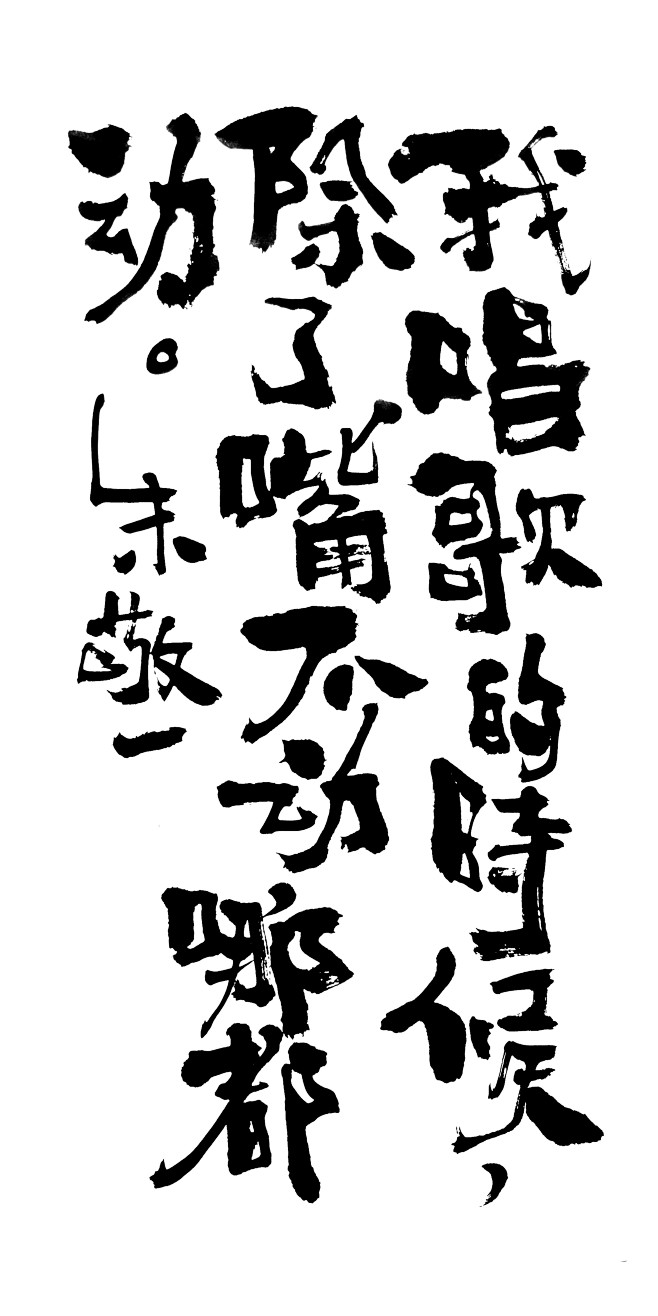 我唱歌的時候，
除了嘴不动哪都
动。
朱敬一